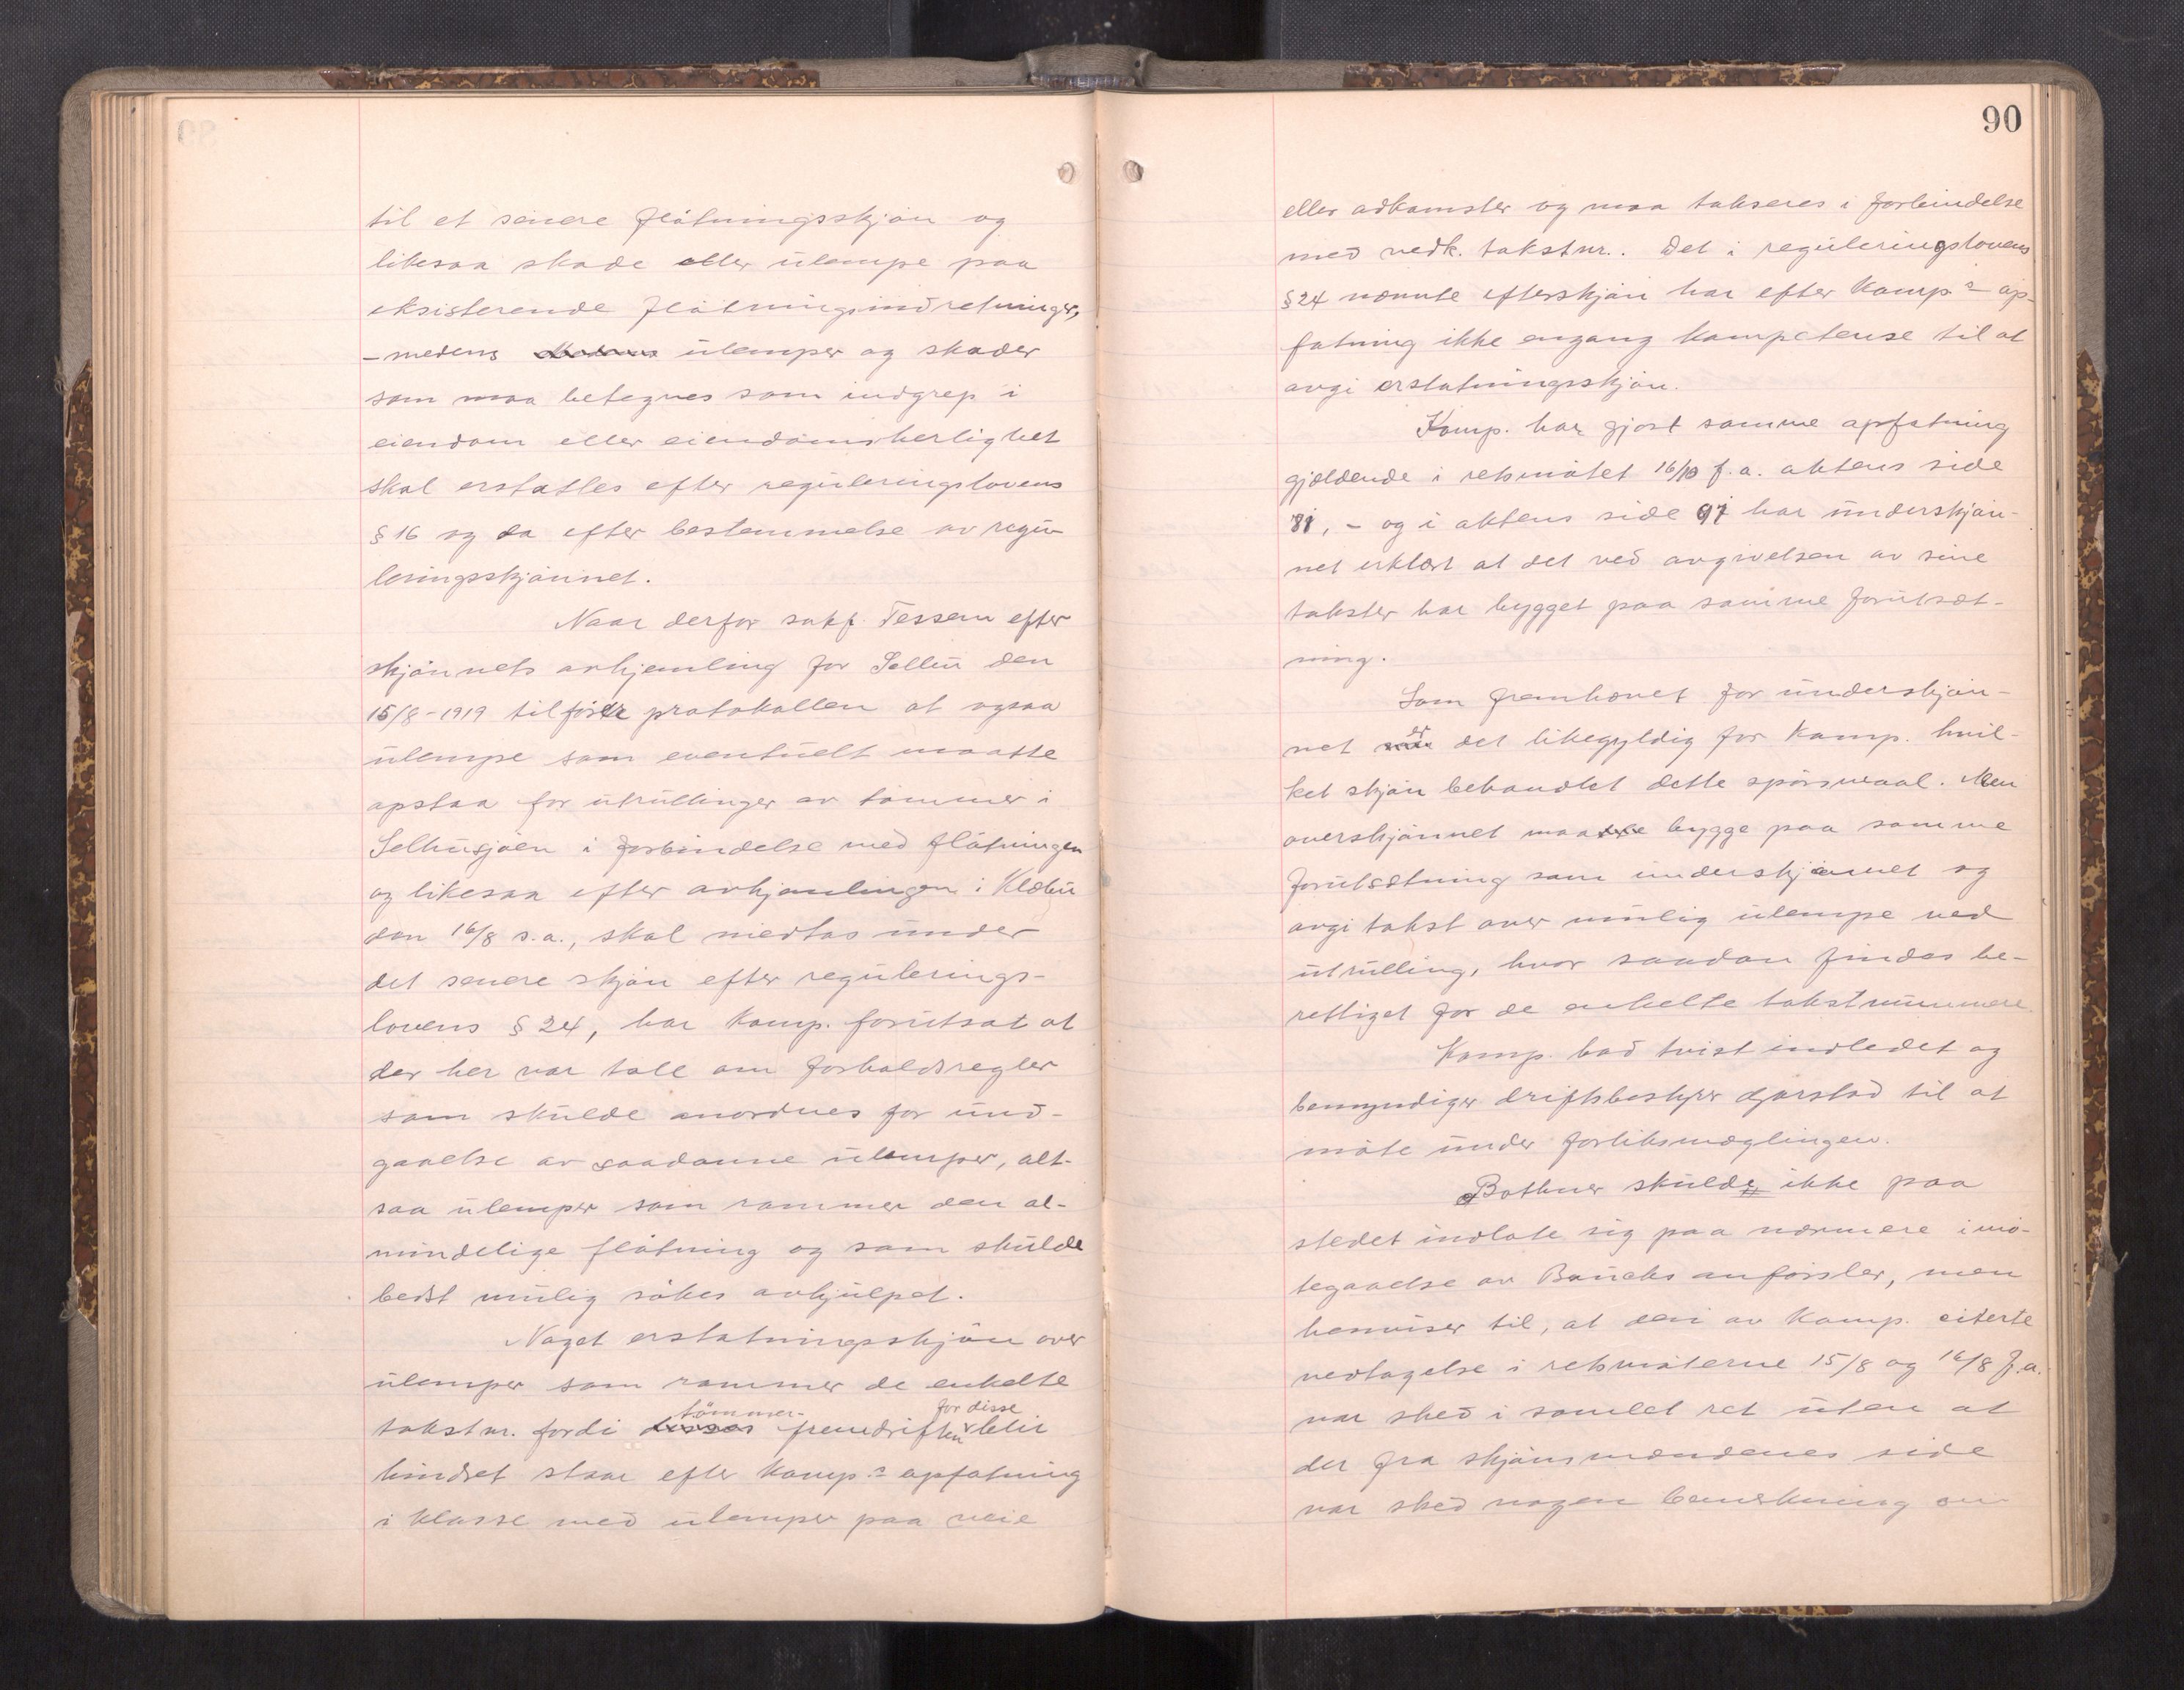 til et senere fløtningsskjøn og
likesaa skade eller ulempe paa
eksisterende fløtningsindretninger,
- medens ulemper og skader
som maa betegnes som indgrep i
eiendom eller eiendomsherlighet
skal erstattes efter reguleringslovens
§ 16 og da efter bestemmelse av regu-
leringsskjønnet.
Naar derfor sakf. Tessem efter
skjønnets avhjemling for Selbu den
15/8-1919 tilfører protokollen at ogsaa
ulempe som eventuelt maatte
opstaa for utrullinger av tømmer i
Selbusjøen i forbindelse med fløtningen
og likesaa efter avhjemlingen i Klæbu
den 16/8 s.a., skal medtas under
det senere skjøn efter regulerings-
lovens § 24, har Komp. forutsat at
der her var tale om forholdsregler
som skulde anordnes for und-
gaaelse av saadanne ulemper, alt-
saa ulemper som rammer den al-
mindelige fløtning og som skulde
bedst mulig søkes avhjulpet.
Noget erstatningsskjøn over
ulemper som rammer de enkelte
takstnr. fordi tømmer- fremdriften for disse blir
hindret staar efter Komp.s opfatning
i klasse med ulemper paa veie
90
eller adkomster og maa takseres i forbindelse
med vedk. takstnr.. Det i reguleringslovens
§ 24 nævnte efterskjøn har efter Komp.s op-
fatning ikke engang kompetense til at
avgi erstatningsskjøn.
Komp. har gjort samme opfatning
gjældende i retsmøtet 16/10 f.a. aktens side
81, - og i aktens side 97 har underskjøn-
net erklært at det ved avgivelsen av sine
takster har bygget paa samme forutsæt-
ning.
Som fremhævet for underskjøn-
net er det likegyldig for Komp. hvil-
ket skjøn behandlet dette spørsmaal. Men
overskjønnet maa bygge paa samme
forutsætning som underskjønnet og
avgi takst over mulig ulempe ved
utrulling, hvor saadan findes be-
rettiget for de enkelte takstnummere.
Komp. bad tvist indledet og
bemyndiger driftsbestyrer Gjørstad til at
møte under forliksmæglingen.
Bothner skulde ikke paa
stedet indlate sig paa nærmere imø-
tegaaelse av Baucks anførsler, men
henviser til, at den av Komp. citerte
vedtagelse i retsmøterne 15/8 og 16/8 f.a.
var sked i samlet ret uten at
der fra skjønsmændenes side
var sked nogen bemerkning om